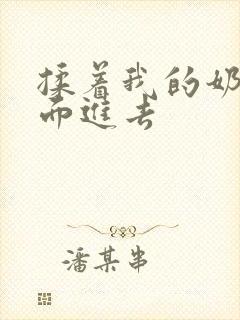 揉着我的奶
而進去
潘某串